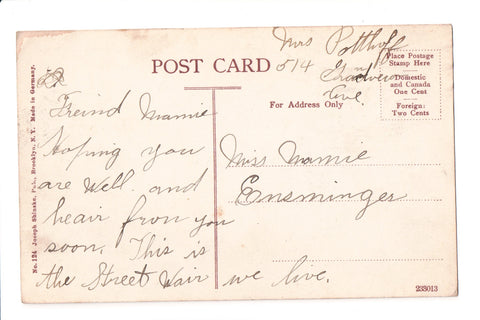 Mrs Potthoff
514 Grandview
Ave.
POST CARD
Place Postage
Stamp Here
Domestic
and Canada
One Cent
Foreign:
Two Cents
For Address Only
Freind Mamie
Hoping you
are well. and
heair fron you
soon. This is
the Street Wair we live.
Miss Mamie
Ensminger
No. 124 Joseph Shinske, Pub., Brooklyn, N.Y. Made in Germany.
233013